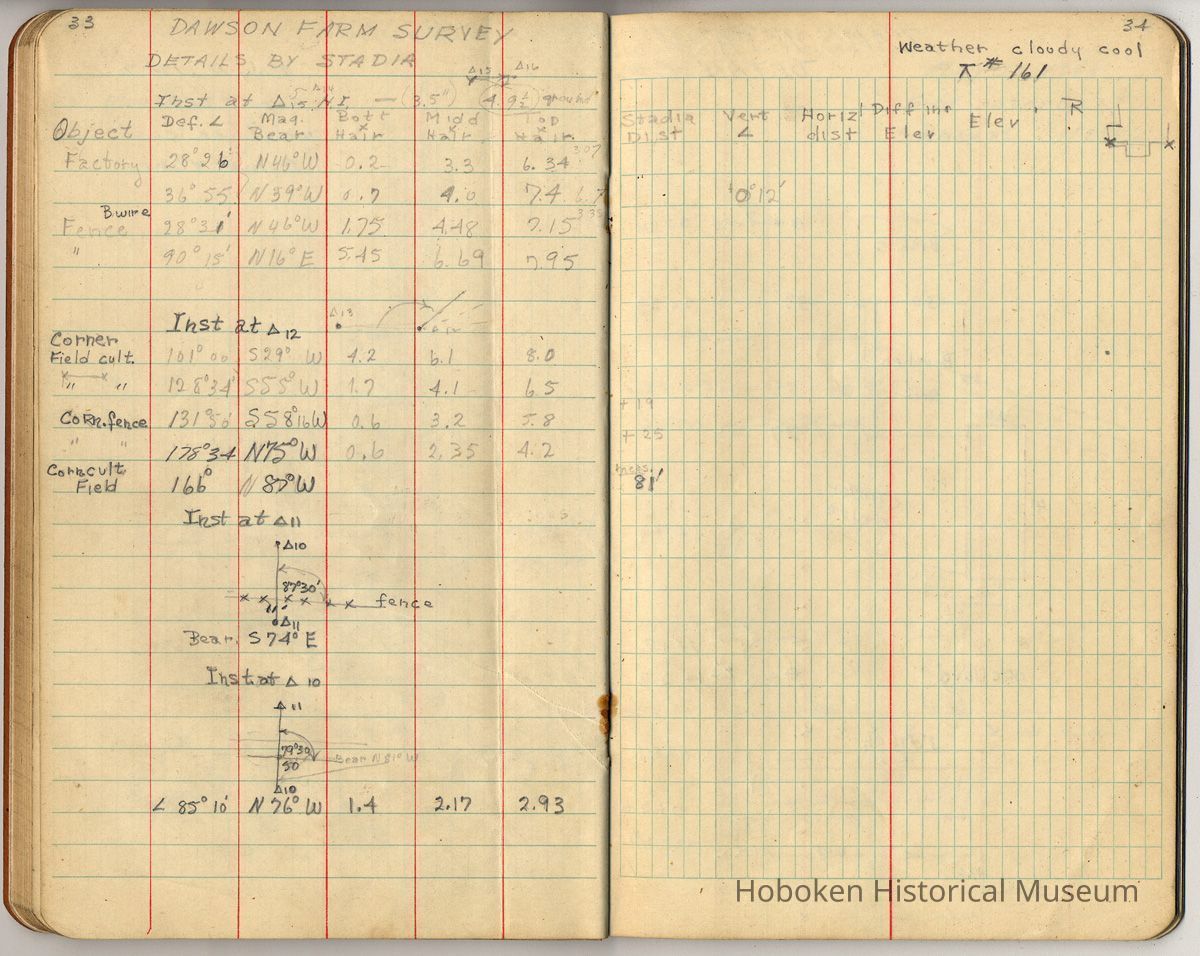 33
DAWSON FARM SURVEY
DETAILS BY STADIA
Δ15 Δ16
Inst at Δ15 H.I. — (3.5") (4.9½) ground
Object Def. ∠ Mag. Bear Bott Hair Midd Hair Top Hair
Factory 28°26' N46°W 0.2 3.3 6.34 307
36°55' N39°W 0.7 4.0 7.4 6.7
B.wire
Fence 28°31' N46°W 1.75 4.48 7.15
" 90°15' N16°E 5.45 6.69 7.95
Inst at Δ12 Δ13
Corner
Field cult. 101°00 S29°W 4.2 6.1 8.0
" " 128°34' S55°W 1.7 4.1 6.5
Corn.fence 131°50' S58°16W 0.6 3.2 5.8
" " 178°34 N75°W 0.6 2.35 4.2
Corn cult.
Field 166° N87°W
Inst at Δ11
Δ10
87°30'
fence
11'
Δ11
Bear. S74°E
Inst at Δ10
Δ11
79°30
Bear N81°W
50
Δ10
∠ 85°10' N76°W 1.4 2.17 2.93
34
Weather cloudy cool
⊼ # 161
Stadia Dist Vert ∠ Horiz'l dist Diff in Elev Elev R
+0°12'
+19
+25
meas.
81'
Hoboken Historical Museum